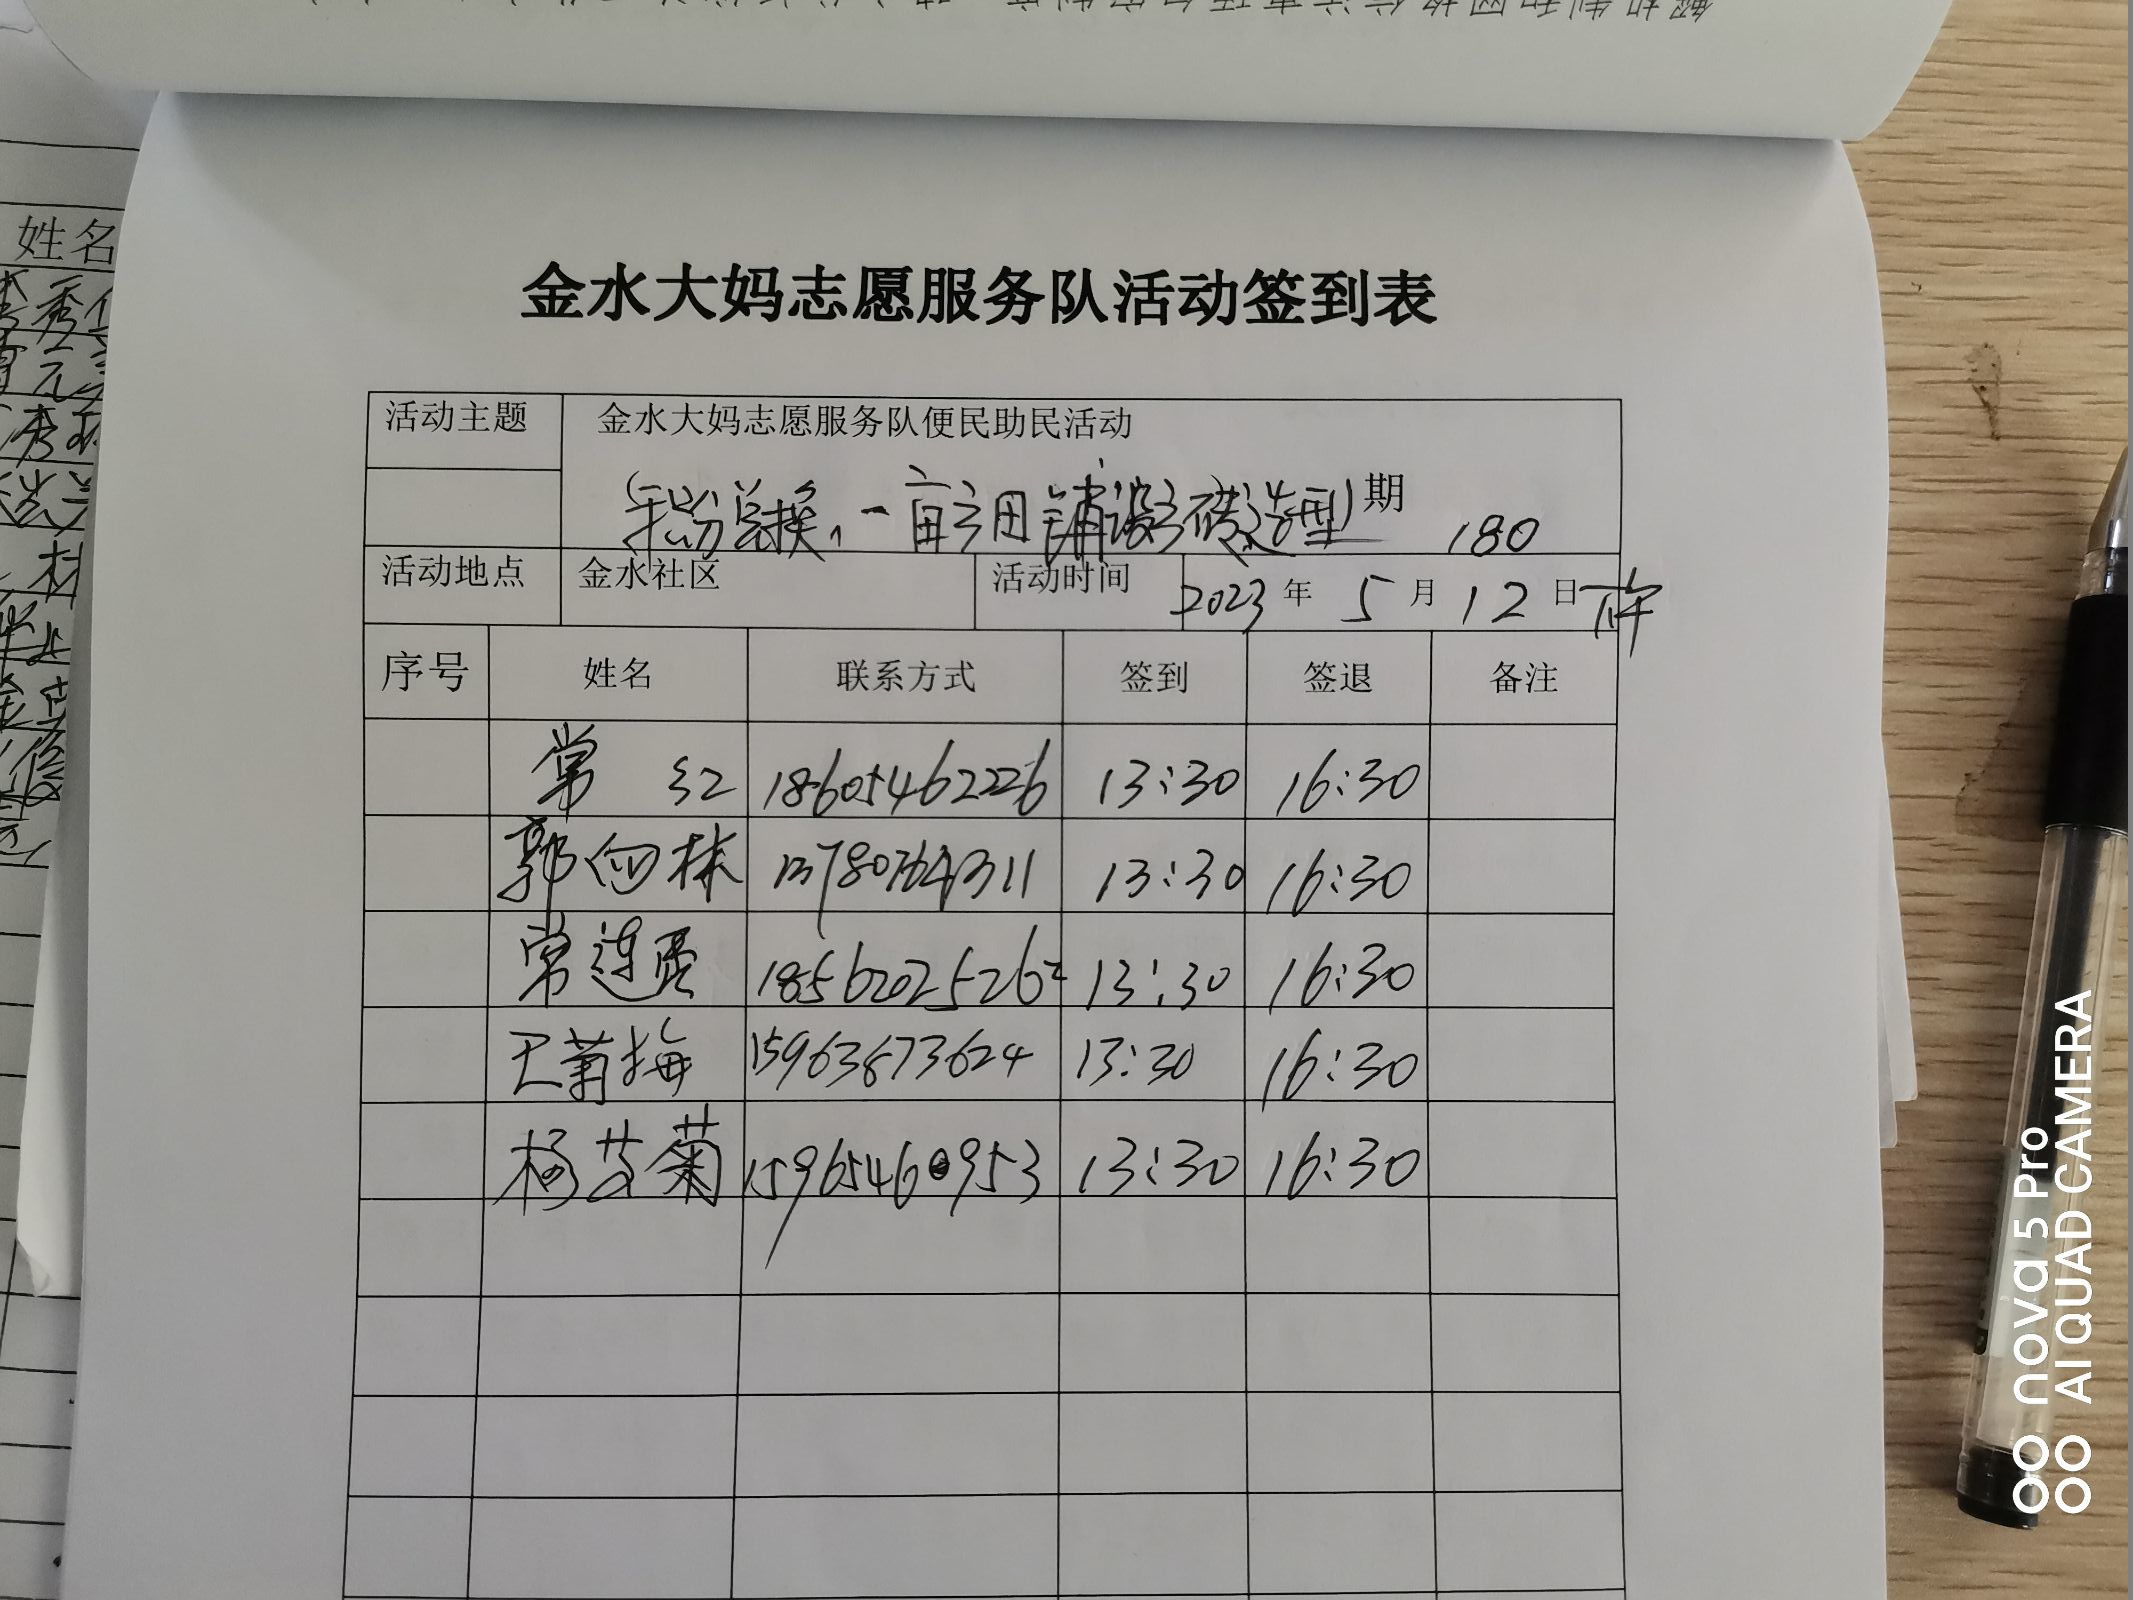 金水大妈志愿服务队活动签到表
活动主题 金水大妈志愿服务队便民助民活动
积分兑换,一亩方田铺设方砖造型 期 180
活动地点 金水社区 活动时间 2023 年 5 月 12 日 下午
序号 姓名 联系方式 签到 签退 备注
常 红 18605462226 13:30 16:30
郭向林 13780764311 13:30 16:30
常连 18562025262 13:30 16:30
王菊梅 15963673624 13:30 16:30
杨艾菊 15965460953 13:30 16:30
姓名
nova 5 Pro
AI QUAD CAMERA